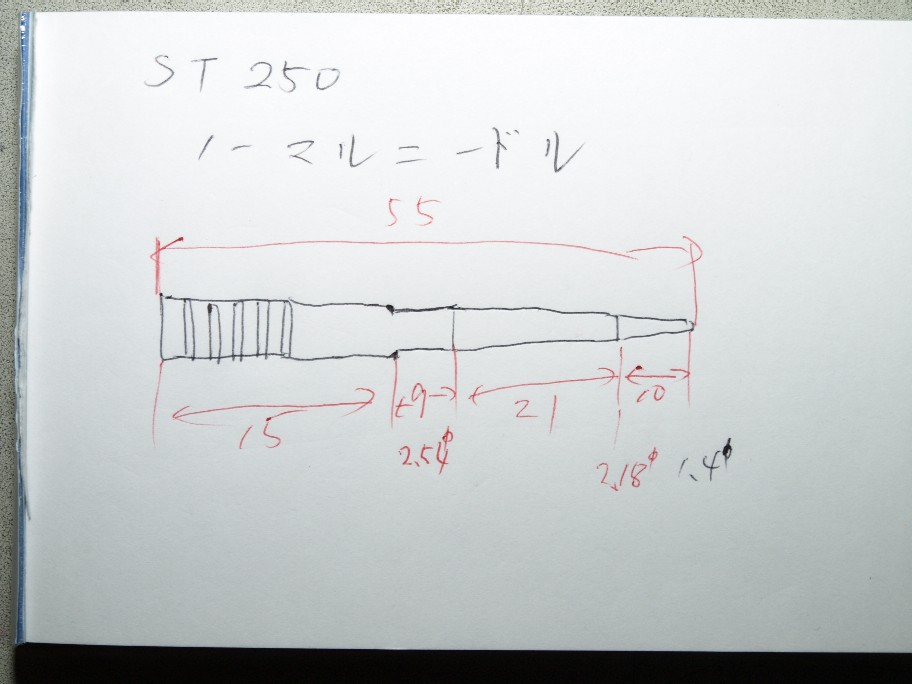 ST 250
ノーマルニードル
55
15
9
21
10
2.54φ
2.18φ
1.4φ